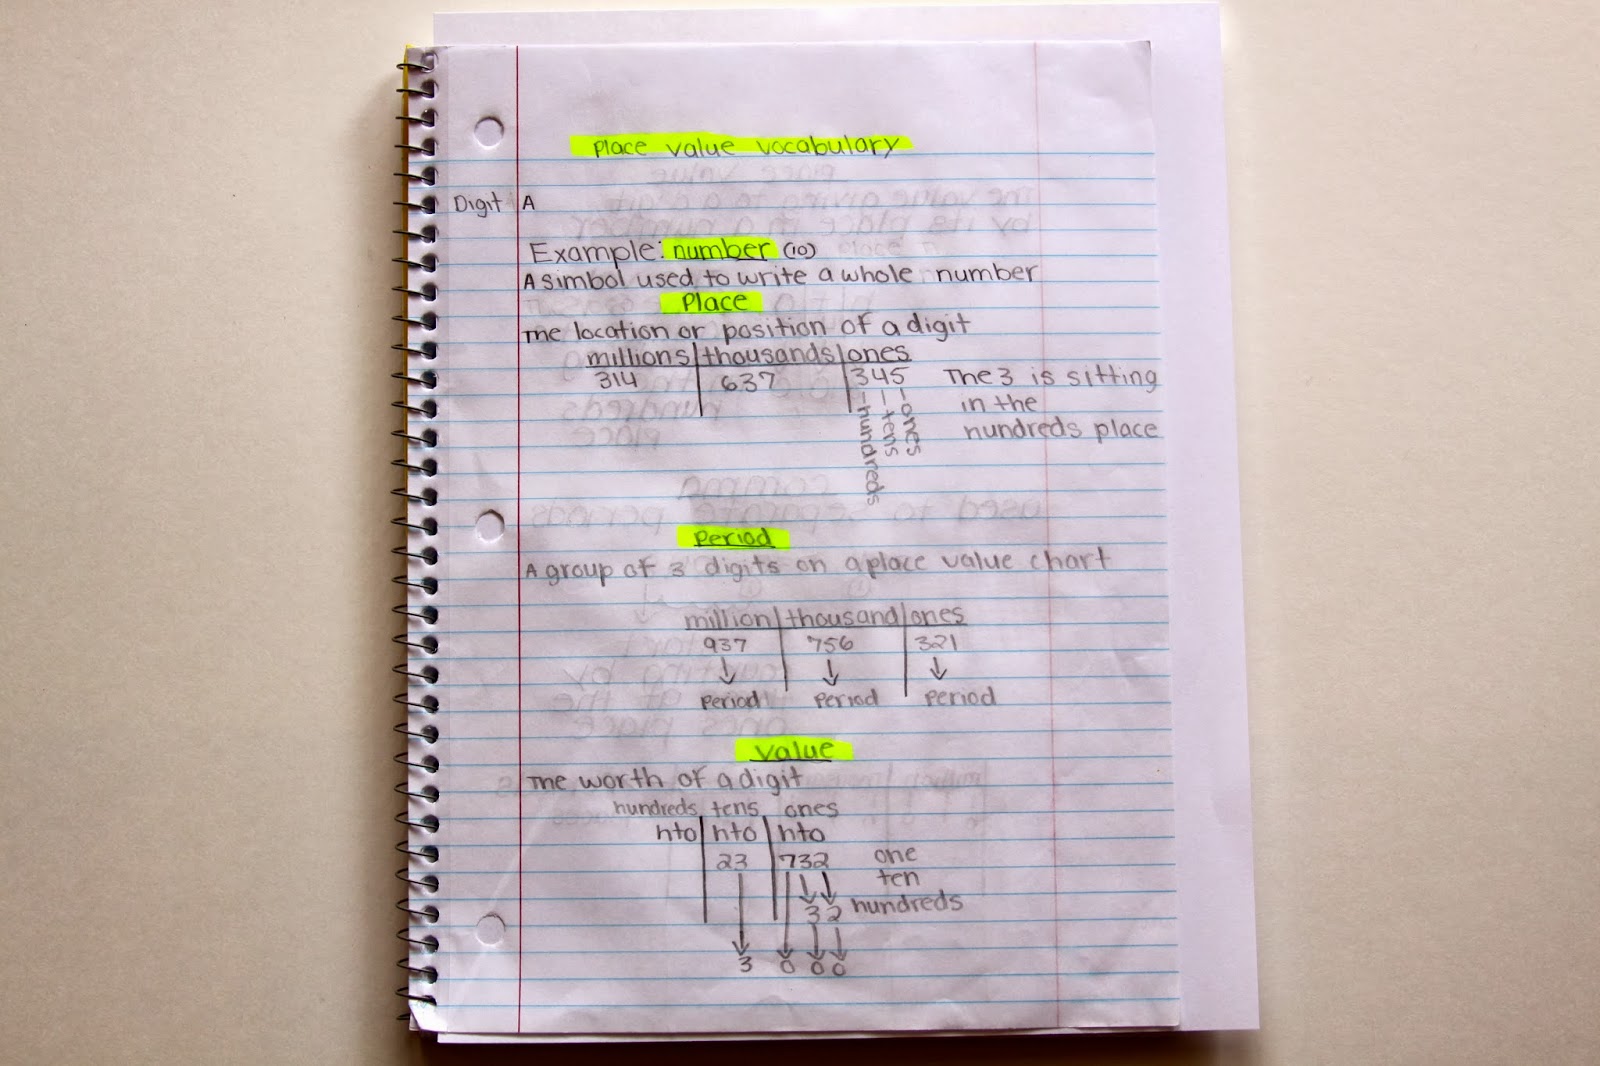 Place value vocabulary
Digit A
Example: number (10)
A simbol used to write a whole number
Place
The location or position of a digit
millions thousands ones
314 637 345 The 3 is sitting
in the
hundreds place
hundreds
tens
ones
Period
A group of 3 digits on a place value chart
million thousand ones
937 756 321
period period period
value
The worth of a digit
hundreds tens ones
hto hto hto
23 732 one
ten
3 2 hundreds
3 0 0 0